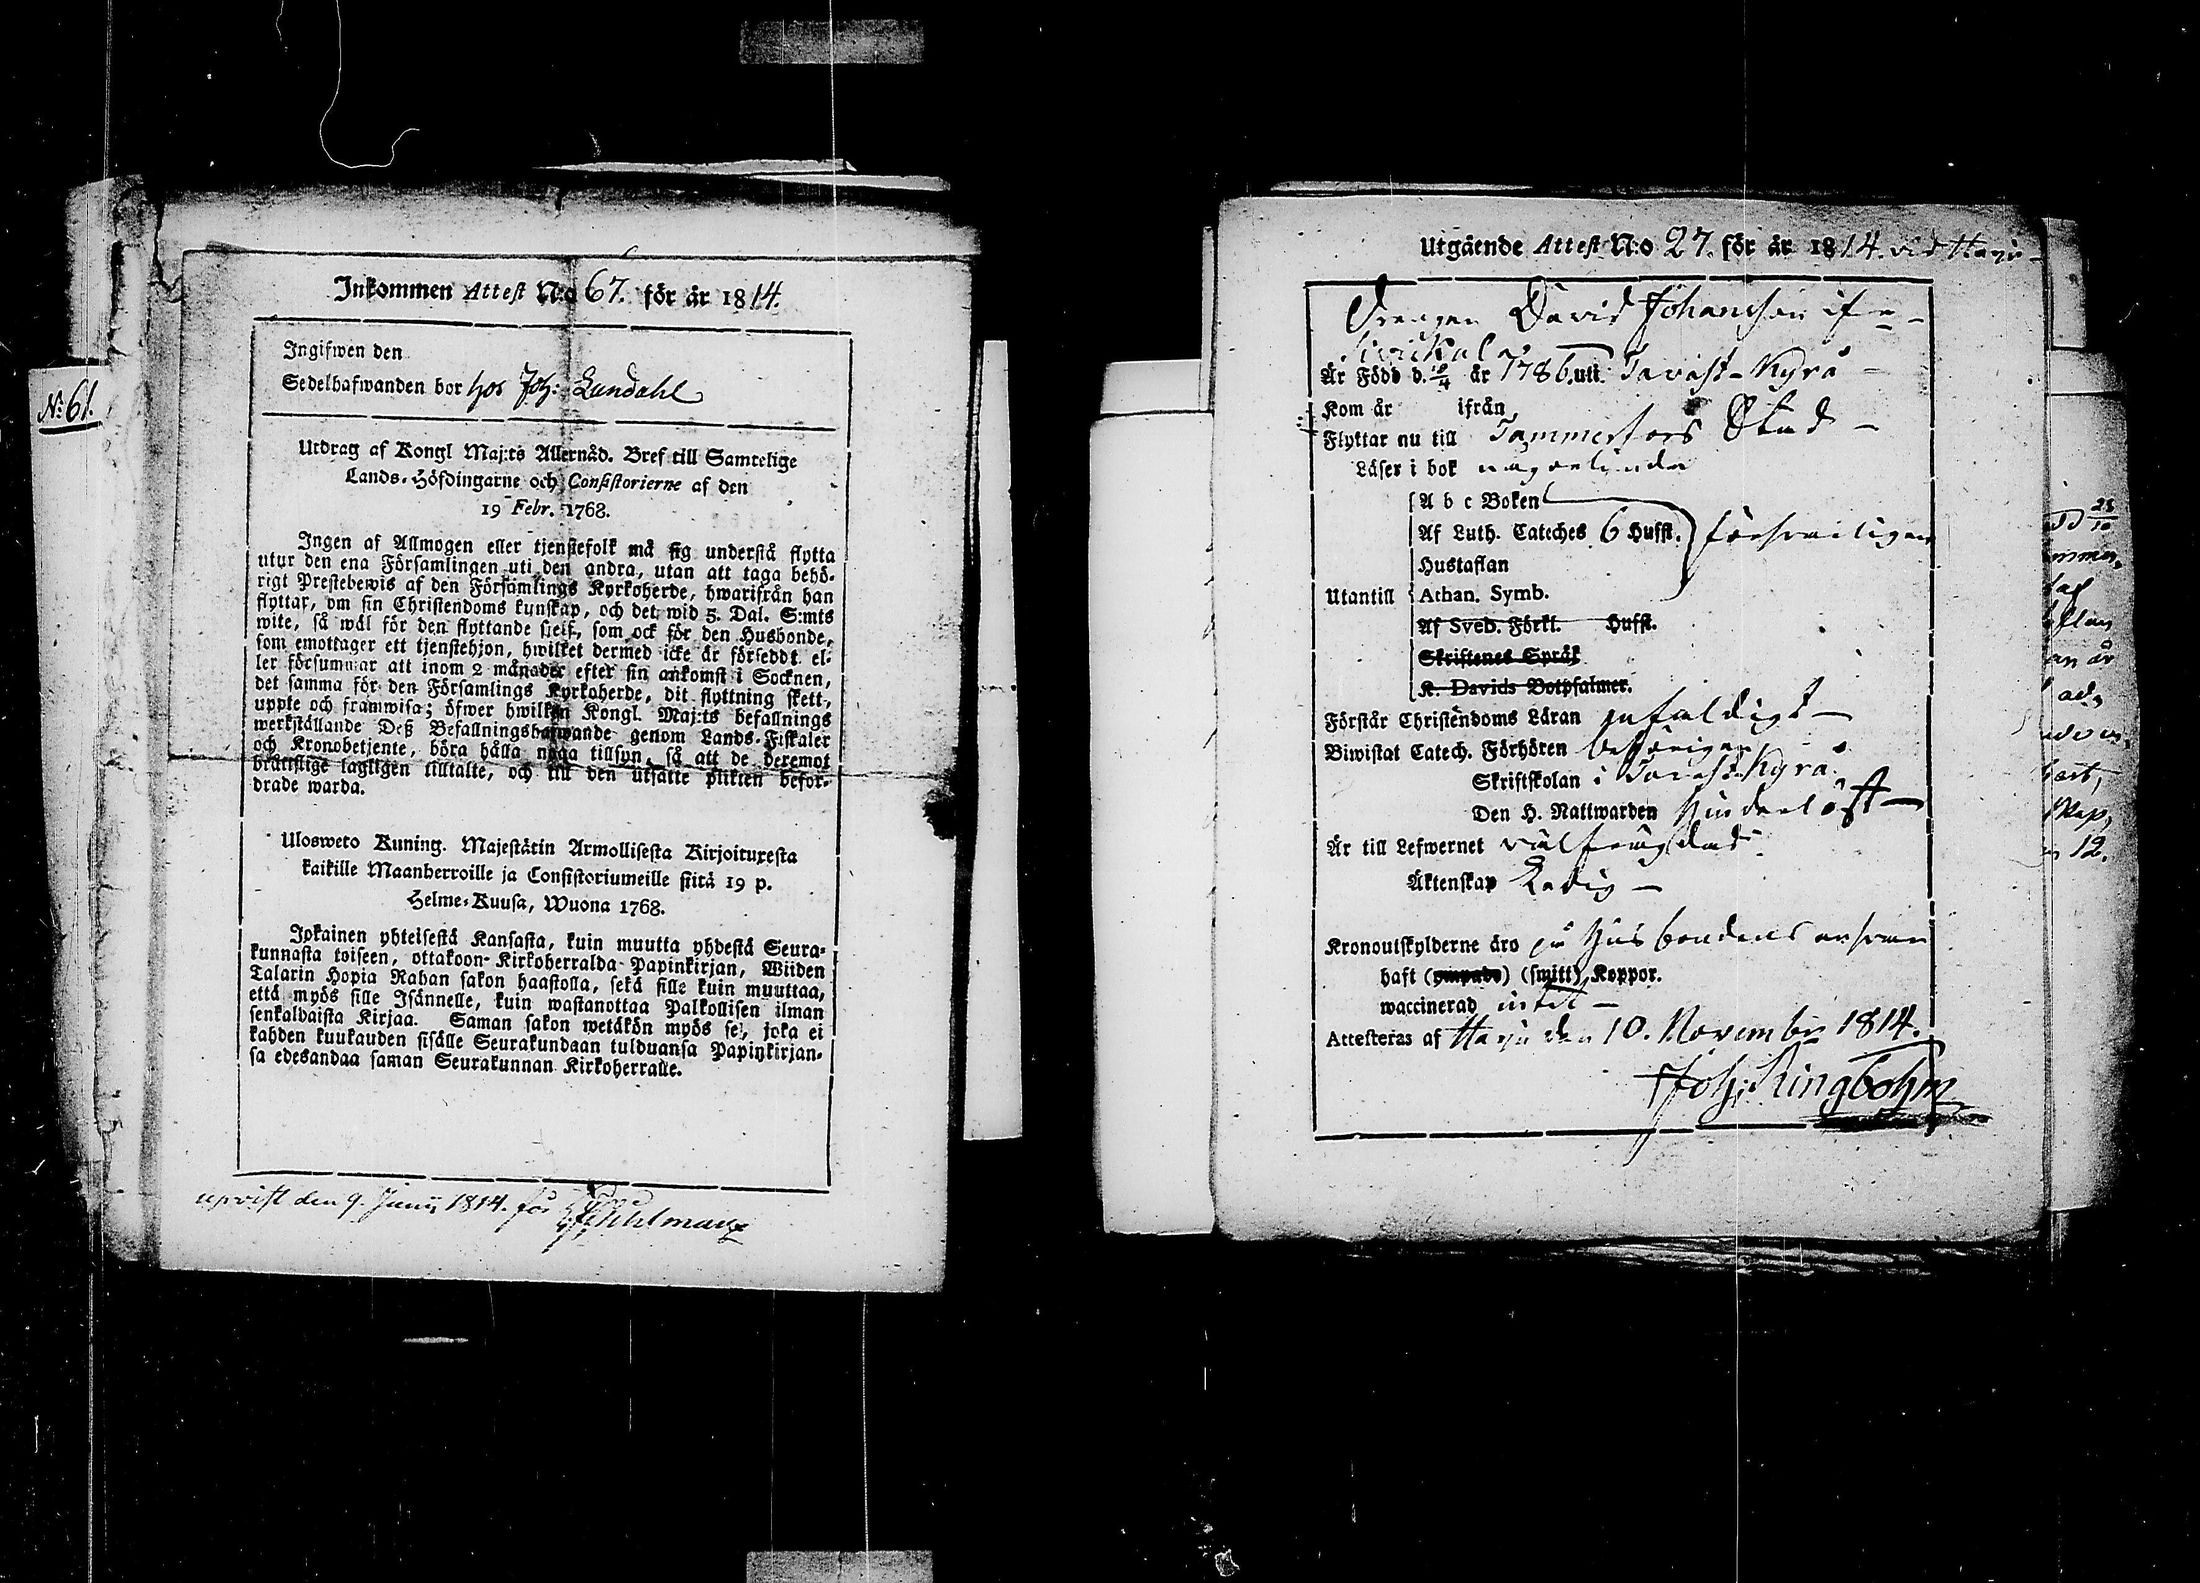 N:61.
Inkommen Attest N:o 67. för år 1814.
Ingifwen den
Sedelhafwanden bor hos Joh: Lundahl
Utdrag af Kongl Maj:ts Allernåd. Bref till Samtelige
Lands-Höfdingarne och Consistorierne af den
19 Febr. 1768.
Ingen af Allmogen eller tjenstefolk må sig understå flytta
utur den ena Församlingen uti den andra, utan att taga behö-
rigt Prestebewis af den Församlings Kyrkoherde, hwarifrån han
flyttar, om sin Christendoms kunskap, och det wid 5. Dal. S:mts
wite, så wäl för den flyttande sielf, som ock för den Husbonde,
som emottager ett tjenstehjon, hwilket dermed icke är försedt el-
ler försummar att inom 2 månader efter sin ankomst i Socknen,
det samma för den Församlings Kyrkoherde, dit flyttning skett,
uppte och framwisa; öfwer hwilken Kongl. Maj:ts befallnings
werkställande Deß Befallningshafwande genom Lands-Fiskaler
och Kronobetjente, böra hålla noga tillsyn, så att de deremot
bråttslige lagligen tilltalte, och till den utsatte plikten befor-
drade warda.
Ulosweto Kuning. Majestätin Armollisesta Kirjoituxesta
kaikille Maanherroille ja Consistoriumeille siitä 19 p.
Helme-Kuusa, Wuona 1768.
Jokainen yhteisestä Kansasta, kuin muutta yhdestä Seura-
kunnasta toiseen, ottakoon Kirkoherralda Papinkirjan, Wiiden
Talarin Hopia Rahan sakon haastolla, sekä sille kuin muuttaa,
että myös sille Isännelle, kuin wastanottaa Palkollisen ilman
senkalbaista Kirjaa. Saman sakon wetäkön myös se, joka ei
kahden kuukauden sisälle Seurakundaan tulduansa Papinkirjan-
sa edesandaa saman Seurakunnan Kirkoherralle.
upvist den 9. Junii 1814. för
Utgående Attest N:o 27. för år 1814. vid Harju
Drengen David Johansson ifr.
Är Född d. 10/4 år 1786. uti Tavast-Kyrö
Kom år ifrån
Flyttar nu till Tammerfors Stad
Läser i bok någorlunda
A b c Boken
Af Luth. Cateches 6 Hufst. försvarligen
Hustaflan
Utantill Athan. Symb.
Af Sveb. Förkl. Hufst.
Skriftenes Språk
K. Davids Botpsalmer.
Förstår Christendoms Läran enfaldigt
Biwistat Catech. Förhören behörigen
Skriftskolan i Tavast-Kyrö
Den H. Nattwarden hinderlöst
Är till Lefwernet välfrägdad
Äktenskap Ledig
Kronoutskylderne äro på Husbondens ansvar
haft (ympade) (smitt) Koppor.
waccinerad intet
Attesteras af Harju den 10. November 1814.
Joh: Ringbohm